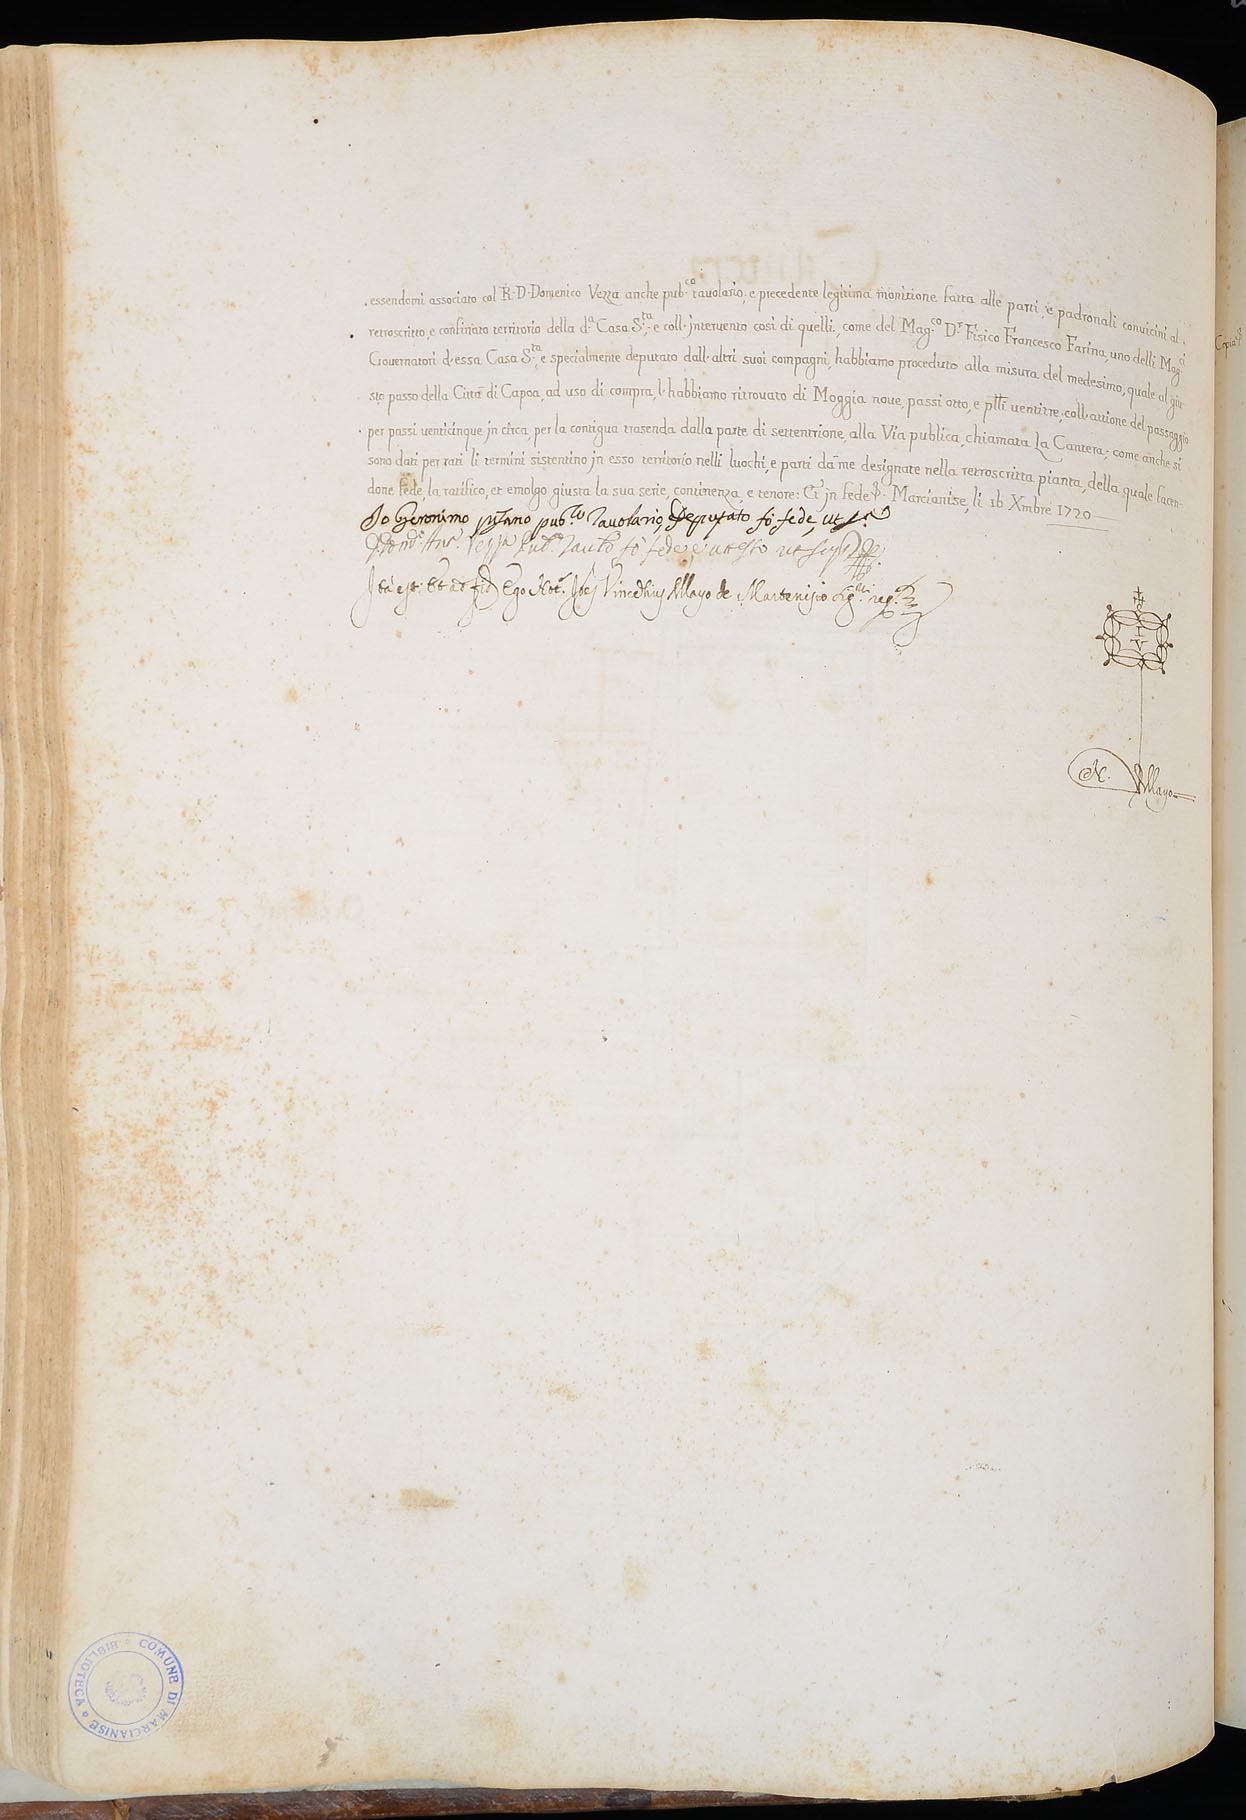 essendomi associato col R. D. Domenico Vezza anche pub.co tavolario, e precedente legitima monizione fatta alle parti, e padronali convicini al
retroscritto, e confinato territorio della d.a Casa S.ta, e coll'intervento così di quelli, come del Mag.co D.r Fisico Francesco Farina, uno delli Mag.ci
Governatori d'essa Casa S.ta, e specialmente deputato dall'altri suoi compagni, habbiamo proceduto alla misura del medesimo, quale al giu-
sto passo della Città di Capoa, ad uso di compra, l'habbiamo ritrovato di Moggia nove, passi otto, e ptti ventitre, coll'attione del passaggio
per passi venticinque in circa, per la contigua trasenda dalla parte di settentrione, alla Via publica, chiamata La Cantera; come anche si
sono dati per tati li termini sistentino in esso territorio nelli luochi, e parti da me designate nella retroscritta pianta, della quale facen-
done fede, la ratifico, et emolgo giusta la sua serie, continenza, e tenore: Et in fede Marcianise, li 16 Xmbre 1720
Io Geronimo pub.co Tavolario Deputato fò fede, ut s.a
Vezza Pub.o Tav.o fò fede, e attesto ut sup.a
Ita est, et ad fid. Ego Not. Vincentius Mayo de Martenisio
N. Mayo
Copia
COMUNE DI MARCIANISE * BIBLIOTECA *